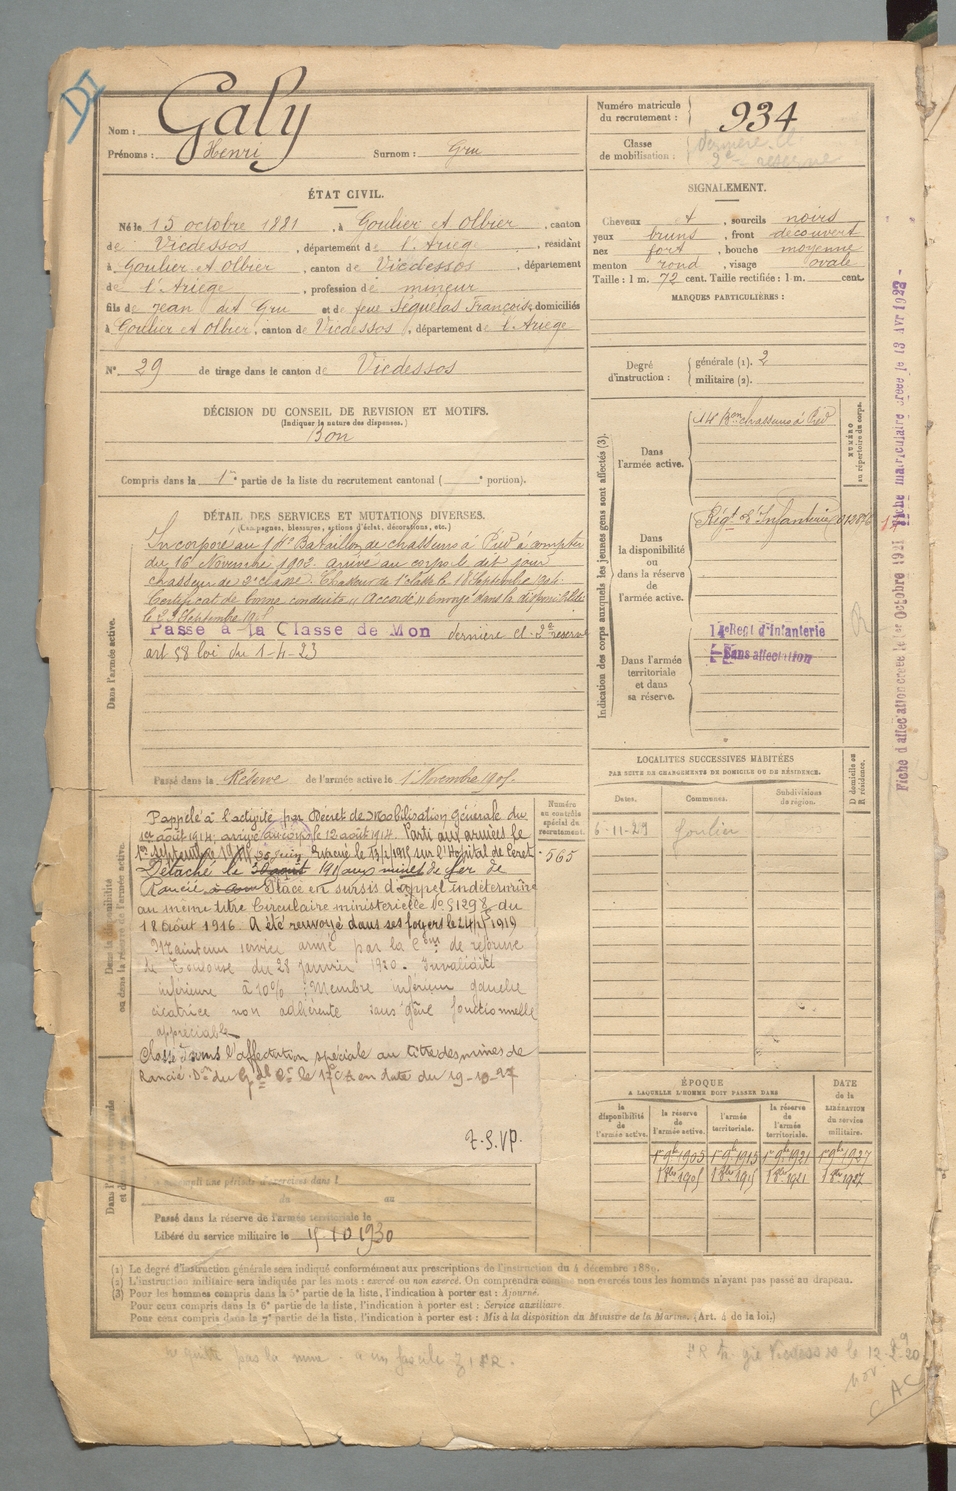 DI
Nom : Galy
Prénoms : Henri Surnom : Gru
Numéro matricule du recrutement : 934
Classe de mobilisation : dernière cl. 2e reserve
ÉTAT CIVIL.
Né le 15 octobre 1881, à Goulier et Olbier, canton
de Vicdessos, département de l'Ariège, résidant
à Goulier et Olbier, canton de Vicdessos, département
de l'Ariège, profession de mineur
fils de Jean det Gru et de feue Séguélas Françoise, domiciliés
à Goulier et Olbier, canton de Vicdessos, département de l'Ariège
N° 29 de tirage dans le canton de Vicdessos
SIGNALEMENT.
Cheveux et, sourcils noirs
yeux bruns, front découvert
nez fort, bouche moyenne
menton rond, visage ovale
Taille : 1 m. 72 cent. Taille rectifiée : 1 m. cent.
MARQUES PARTICULIÈRES :
Degré d'instruction : générale (1). 2
militaire (2).
DÉCISION DU CONSEIL DE REVISION ET MOTIFS.
(Indiquer la nature des dispenses.)
Bon
Compris dans la 1re partie de la liste du recrutement cantonal ( e portion).
DÉTAIL DES SERVICES ET MUTATIONS DIVERSES.
(Campagnes, blessures, actions d'éclat, décorations, etc.)
Dans l'armée active.
Incorporé au 14e Bataillon de chasseurs à Pied à compter
du 16 Novembre 1902. arrivé au corps le dit jour
chasseur de 2e classe. Chasseur de 1e classe le 18 Septembre 1904.
Certificat de bonne conduite "Accordé" Envoyé dans la disponibilité
le 23 Septembre
Passé à la Classe de Mon dernière cl. 2e reserve
art 58 loi du 1-4-23
Passé dans la Réserve de l'armée active le 1 Novembre 1905
Indication des corps auxquels les jeunes gens sont affectés (3).
NUMÉRO au répertoire du corps.
Dans l'armée active.
14e Bon chasseurs à Pied
Dans la disponibilité ou dans la réserve de l'armée active.
Régt d'Infanterie
Dans l'armée territoriale et dans sa réserve.
14e Regt d'Infanterie
Sans affectation
Fiche d'affectation créée le 1er Octobre 1921 Fiche matriculaire créée le 13 Avr
LOCALITÉS SUCCESSIVES HABITÉES
PAR SUITE DE CHANGEMENTS DE DOMICILE OU DE RÉSIDENCE.
D domicile ou R résidence.
Dates. Communes. Subdivisions de région.
6-11-29 Goulier
Numéro au contrôle spécial du recrutement.
565
Dans la disponibilité ou dans la réserve de l'armée active.
Rappelé à l'activité par Décret de Mobilisation générale du
1er août 1914; arrivé au corps le 12 août 1914. Parti aux armées le
1er septembre Evacué le sur l'Hopital de Céret
Détaché le 30 juin aux mines de fer de
Rancié Placé en sursis d'appel indéterminé
au même titre Circulaire ministérielle No 51298 du
18 août 1916. A été renvoyé dans ses foyers le 1919
Maintenu service armé par la Con de réforme
de Toulouse du 28 janvier 1920. Invalidité
inférieure à 10% : Membre inférieur gauche
cicatrice non adhérente sans gêne fonctionnelle
appréciable
Classé dans l'affectation spéciale au titre des mines de
Rancié. Don du Gal Ct le 17e CA en date du 19-10-27
T.S.V.P.
du au
Passé dans la réserve de l'armée territoriale le
Libéré du service militaire le 15-10 1930
ÉPOQUE
A LAQUELLE L'HOMME DOIT PASSER DANS
la disponibilité de l'armée active. la réserve de l'armée active. l'armée territoriale. la réserve de l'armée territoriale.
DATE de la LIBÉRATION du service militaire.
1er 9bre 1905 1er 9bre 1915 1er 9bre 1921 1er 9bre 1927
(1) Le degré d'instruction générale sera indiqué conformément aux prescriptions de l'instruction du 4 décembre 1889.
(2) L'instruction militaire sera indiquée par les mots : exercé ou non exercé. On comprendra comme non exercés tous les hommes n'ayant pas passé au drapeau.
(3) Pour les hommes compris dans la 5e partie de la liste, l'indication à porter est : Ajourné.
Pour ceux compris dans la 6e partie de la liste, l'indication à porter est : Service auxiliaire.
Pour ceux compris dans la 7e partie de la liste, l'indication à porter est : Mis à la disposition du Ministre de la Marine. (Art. 4 de la loi.)
ne quitte pas la mine.
CAC